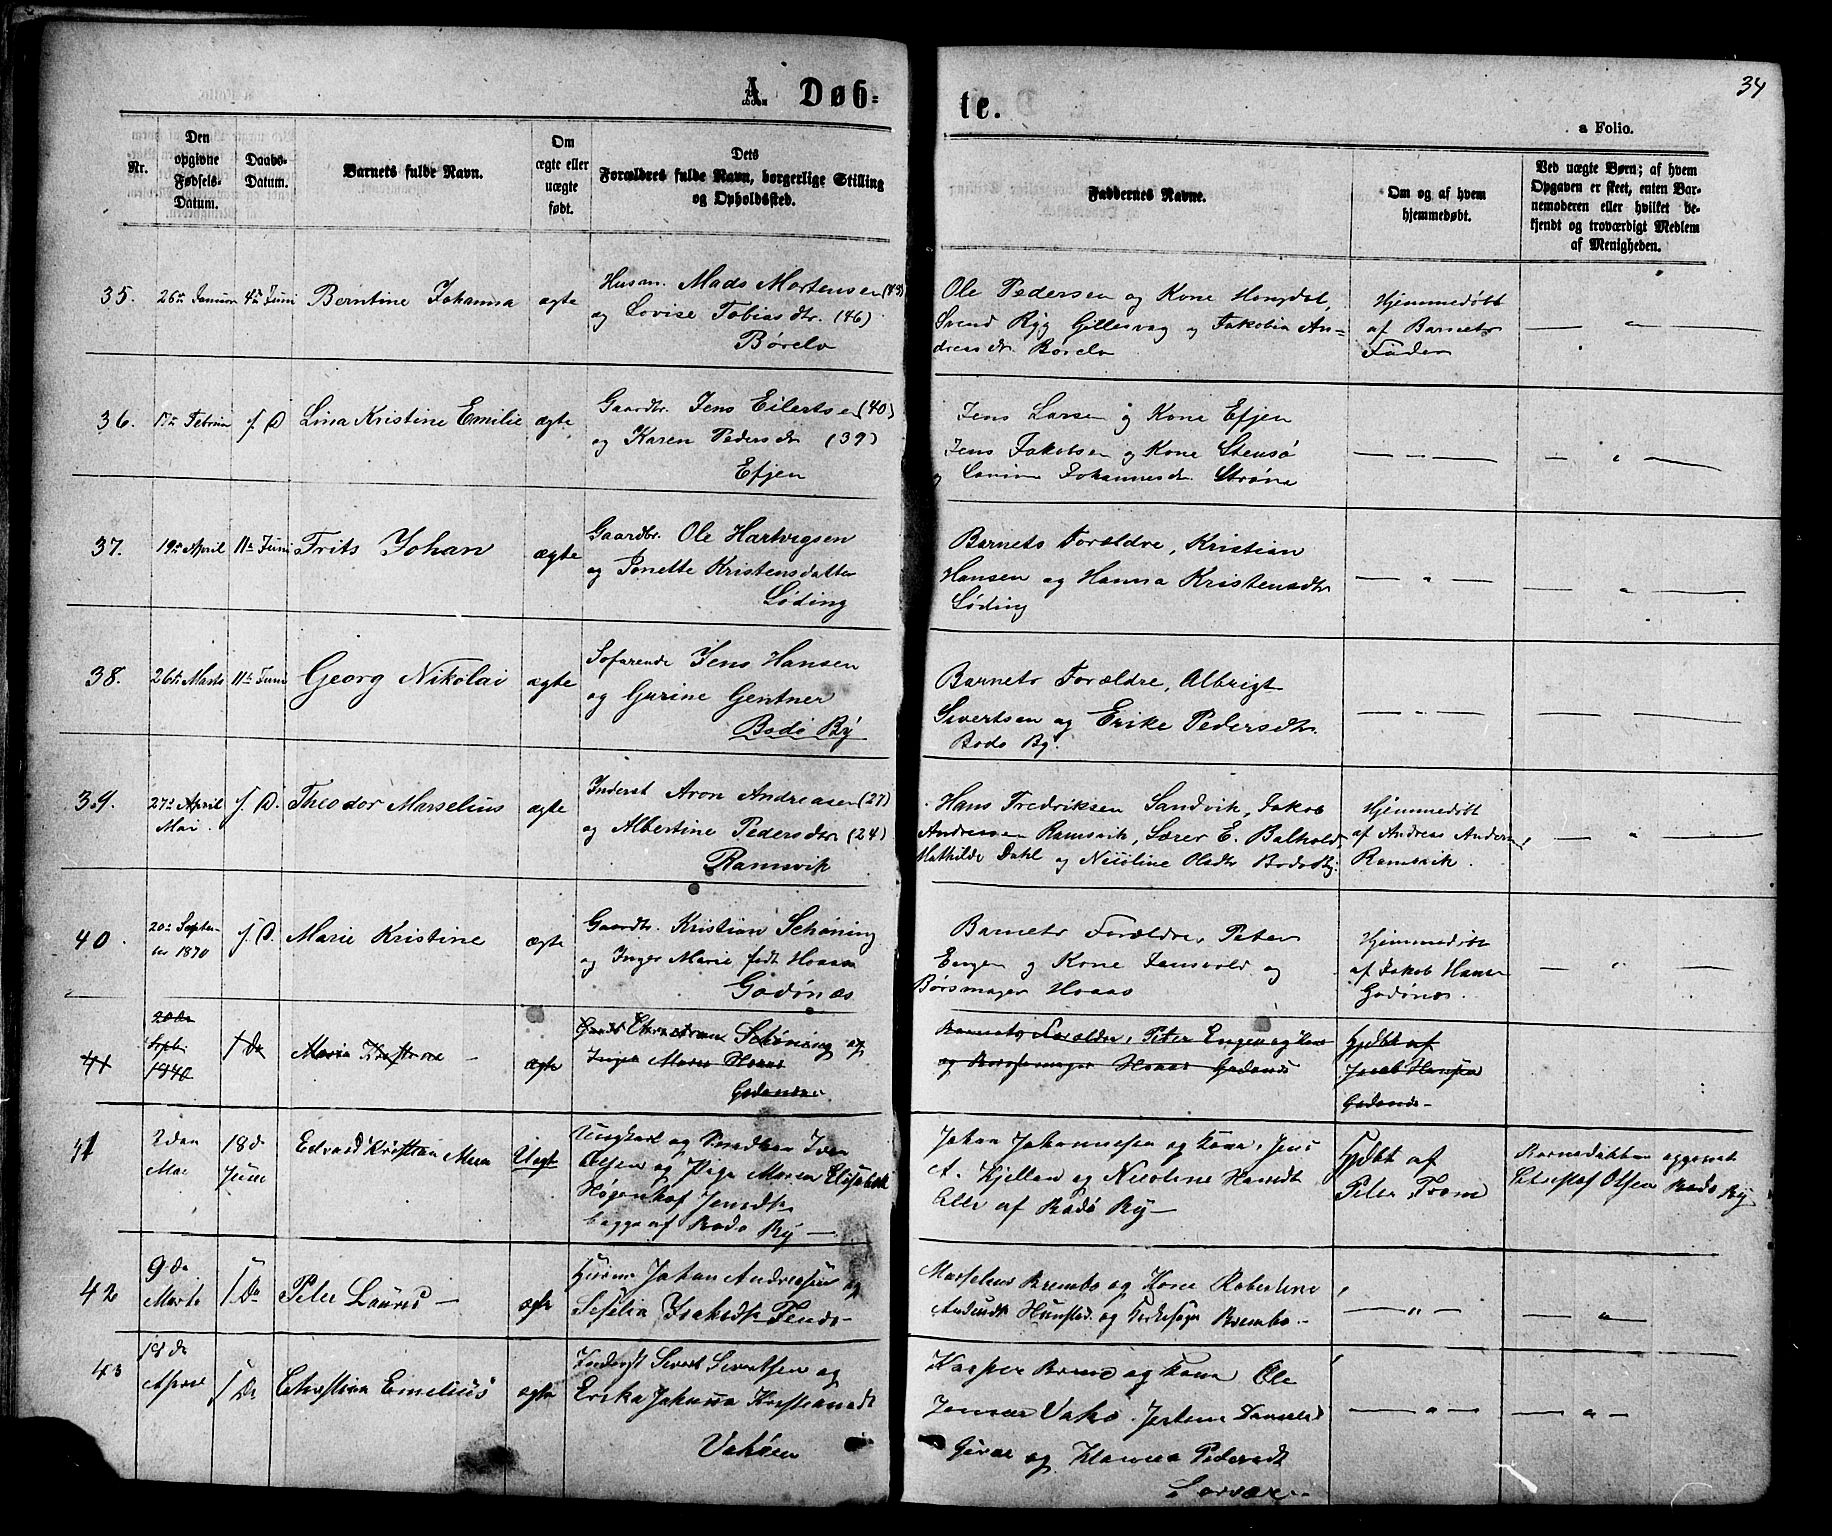 34
A Døb-
te.
a Folio.
Nr.
Den opgivne Fødsels-Datum.
Daabs-Datum.
Barnets fulde Navn.
Om ægte eller uægte født.
Dets Forældres fulde Navn, borgerlige Stilling og Opholdssted.
Faddernes Navne.
Om og af hvem hjemmedøbt.
Ved uægte Børn; af hvem Opgaven er skeet, enten Barnemoderen eller hvilket bekjendt og troværdigt Medlem af Menigheden.
35. 26de Januar 4de Juni Berntine Johanna ægte
Husm. Mads Mortensen (43)
og Lovise Tobiasdtr. (46)
Børelv
Ole Pedersen og Kone Hongdal,
Svend Ryg Gillesvag og Jakobia An-
dreasdr. Børelv
Hjemmedøbt
af Barnets
Fader
— " —
36. 17de Februar f. D. Lina Kristine Emilie ægte
Gaardbr. Jens Eilertsen (40)
og Karen Pedersdr. (39)
Efjen
Jens Larsen og Kone Efjen
Jens Jakobsen og Kone Stensø
og Johannesdr. Strøne
— " —
— " —
37. 19de April 11te Juni Frits Johan ægte
Gaardbr. Ole Hartvigsen
og Jonette Kristensdatter
Løding
Barnets Forældre, Kristian
Hansen og Hanna Kristensdtr
Løding
— " —
— " —
38. 26de Marts 11te Juni Georg Nikolai ægte
Søfarende Jens Hansen
og Gurine Gentner
Bodø By
Barnets Forældre, Albrigt
Sivertsen og Erike Pedersdtr.
Bodø By.
— " —
— —
39. 27de April f. D. Theodor Marselius ægte
Mai.
Inderst Aron Andreasen (27)
og Albertine Pedersdtr (24)
Ramsvik
Hans Fredriksen Sandvik, Jakob
Andresen Ramsvik, Sører E. Balhold,
Mathilde Dahl og Nicoline Olsdtr Bodøby.
Hjemmedøbt
af Andreas Andersen
Ramsvik.
— " —
40. 20de Septem-
ber 1870 f. D. Marie Kristine ægte
Gaardbr. Kristian Schøning
og Inger Marie født Hoaas
Godønæs
Barnets Forældre, Peter
Engen og Kone Jensvold og
Børsmager Hoaas
Hjemmedøbt
af Jakob Hansen
Godønes.
— " —
41 20de
Septr
1870 f D Maria Kristine — ægte
Schøning og
Inger Marie Hoaas
Godønæs
Barnets Forældre, Peter Engen og Kone
og Børsmager Hoaas Godønes
Hjdbt af
Jacob Hansen
Godønes
41 2den
Mai 18de
Juni Edvard Kristian Uægt
Ungkarl og Iver
Olsen og Pige Maren Elisabeth
Jensdtr
begge af Bodø By —
Johan Johannesen og Kone, Jens
A. Kjellan og Nicoline Hansdt
Alle af Bodø By —
Hjdbt af
Peter From
Barnefaderen opgivet
Olsen Bodø By
42 9de
Marts f D Peter Laurits — ægte
Husm Johan Andreasen og
Sefelia Isaksdtr
Marselius Brembo og Kone Robertine
Brembo —
— " —
— " —
43 18de
April f D Christian Emelius ægte
Inderst Sivert Sivertsen og
Erika Johanna Kristiansdt
Vatøien
Kasper og Kone Ole
Jensen
og Hanna Pedersdt